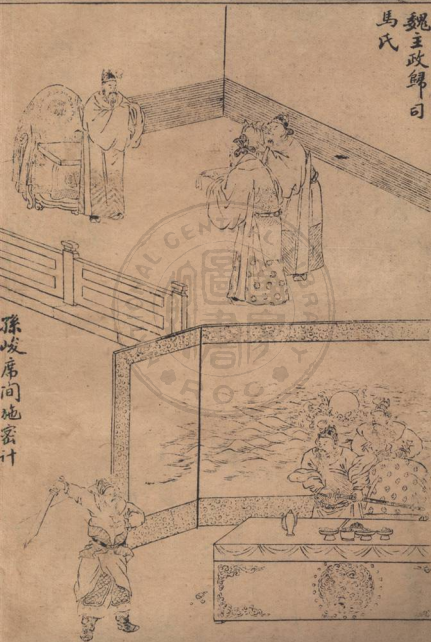 魏主政歸司
馬氏
孫峻席间施密计